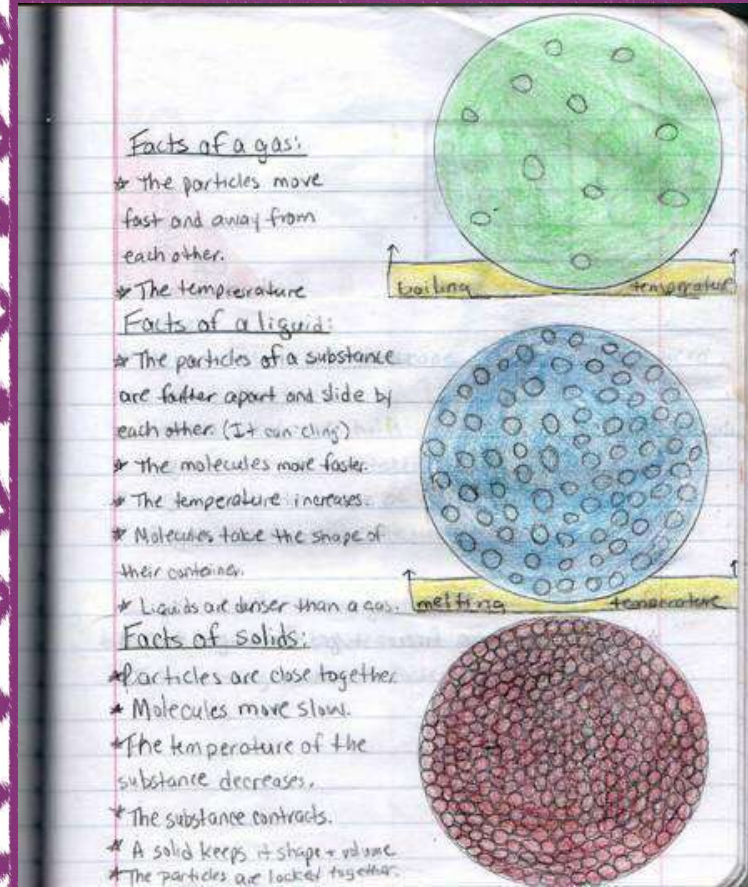 Facts of a gas:
* The particles move
fast and away from
each other.
* The tempresrature
boiling temperature
Facts of a liquid:
* The particles of a substance
are farther apart and slide by
each other. (It can cling)
* The molecules move faster.
* The temperature increases.
* Molecules take the shape of
their container.
* Liquids are denser than a gas.
melting temperature
Facts of solids:
* Particles are close together
* Molecules move slow.
* The temperature of the
substance decreases.
* The substance contracts.
* A solid keeps it shape + volume
* The particles are locked together.